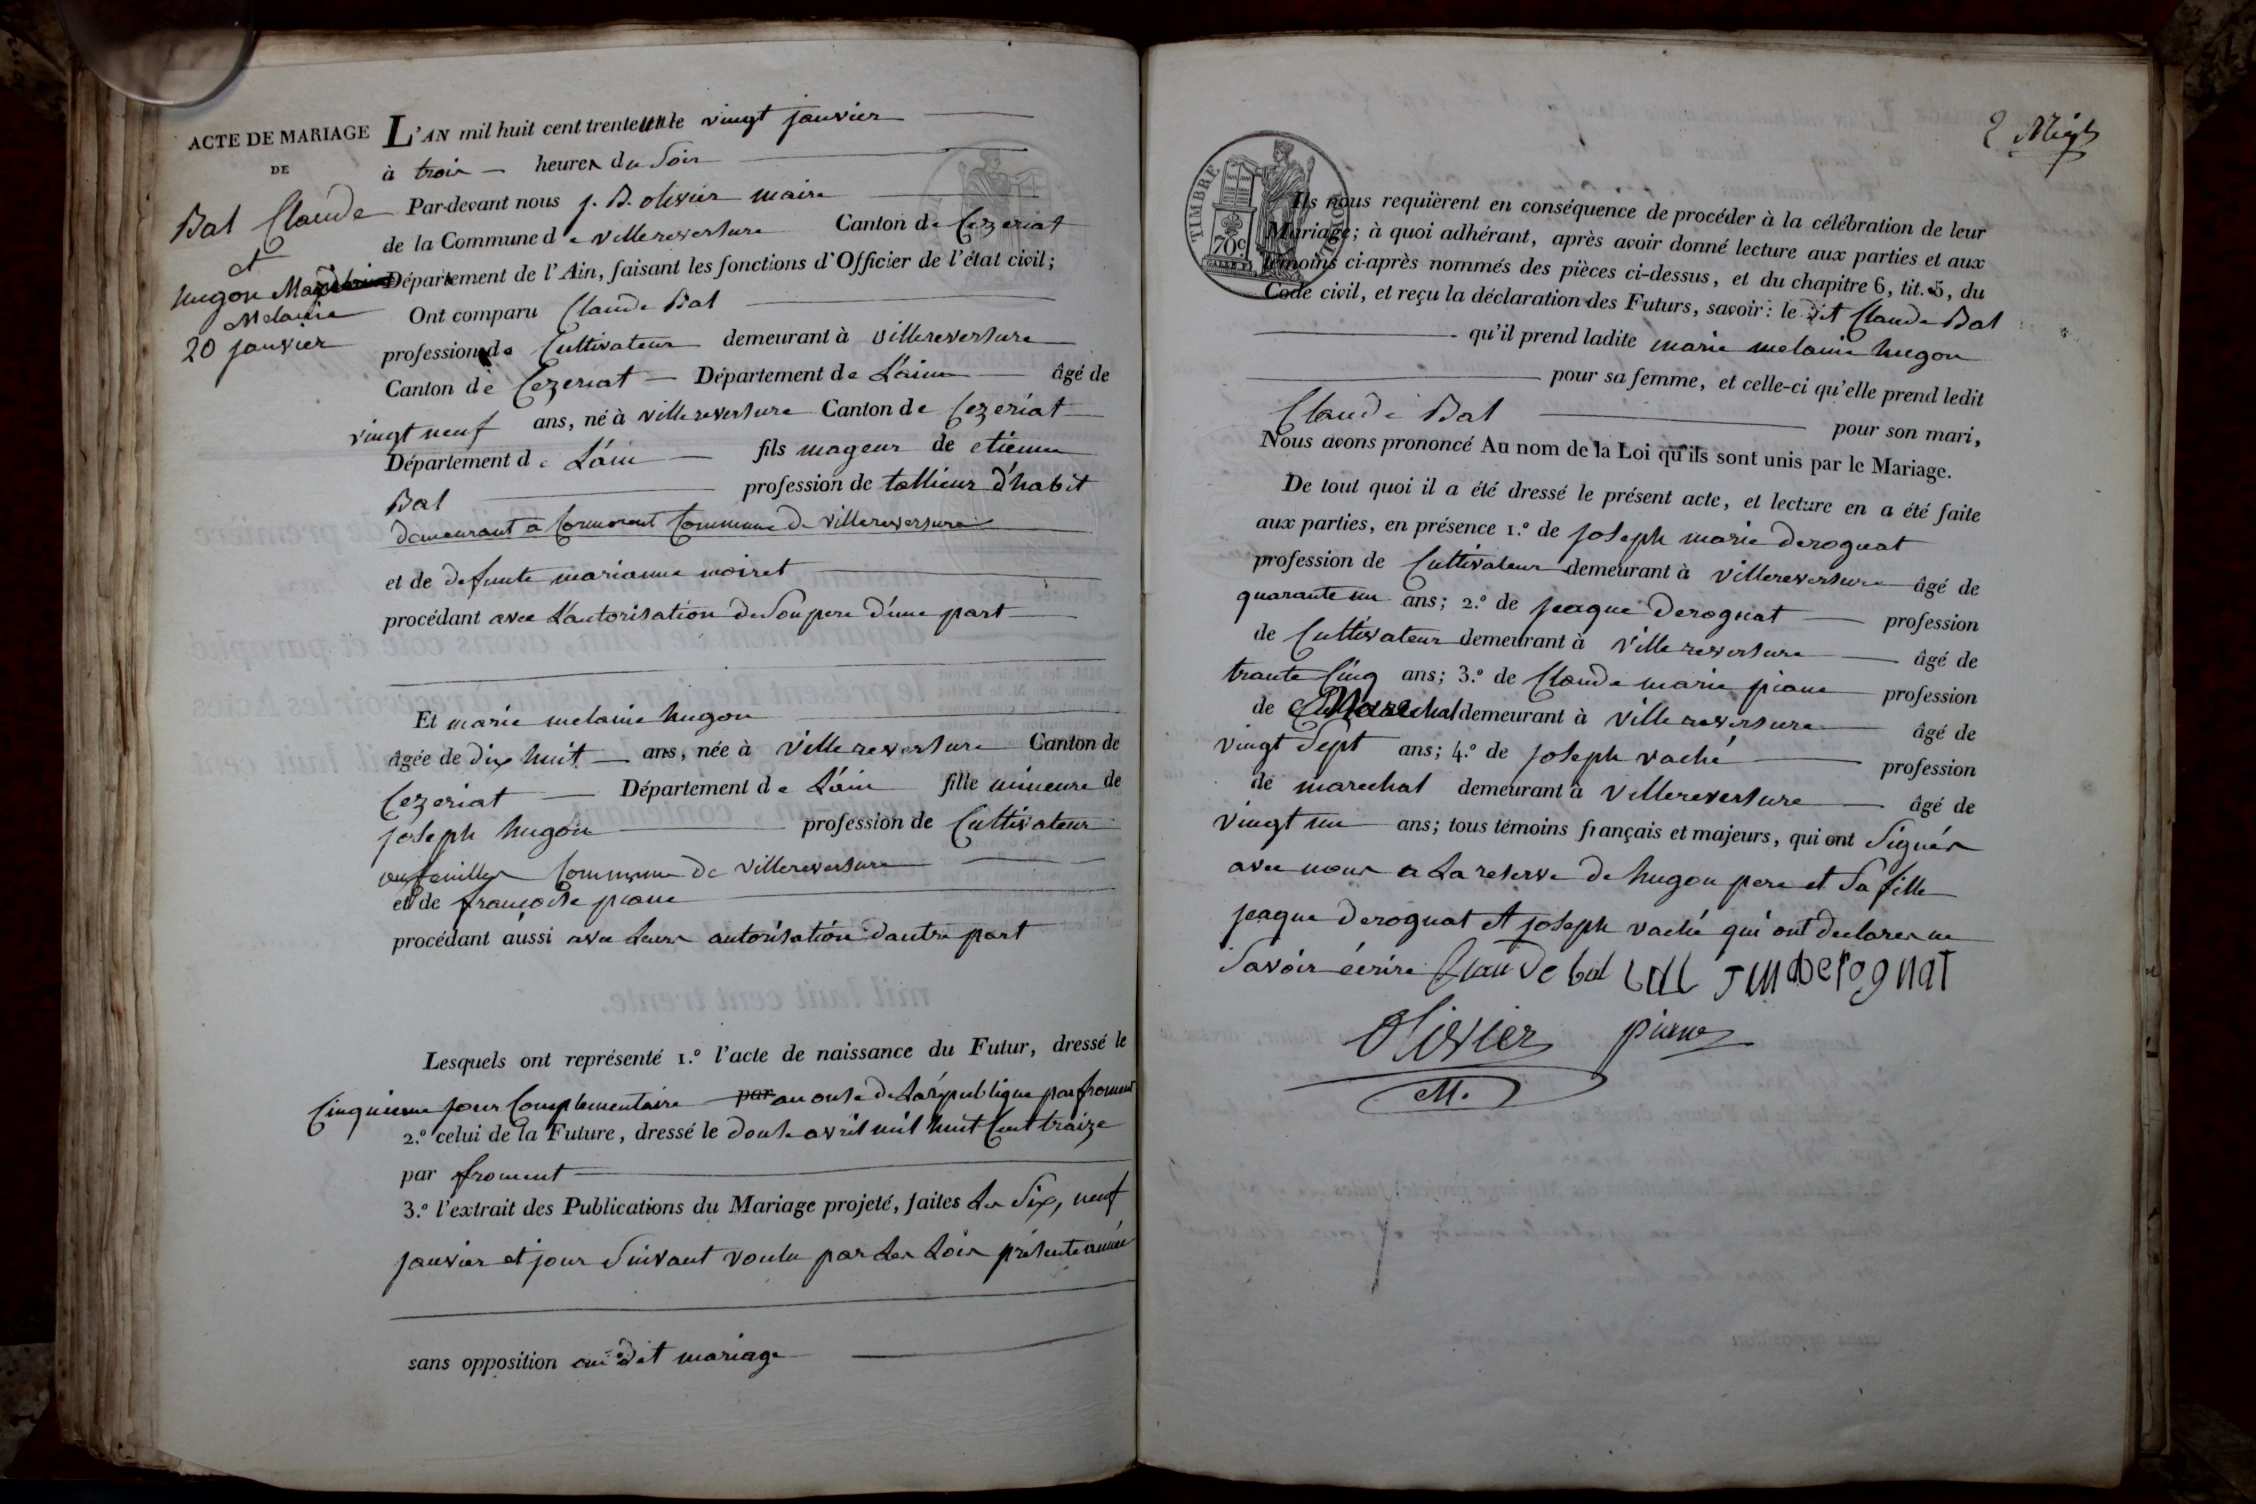 ACTE DE MARIAGE
DE
Bal Claude
et
hugon
Melanie
20 janvier
L'AN mil huit cent trente un le vingt janvier
à trois heures du Soir
Par-devant nous j. B. olivier maire
de la Commune de villereversure Canton de Cezeriat
Département de l'Ain, faisant les fonctions d'Officier de l'état civil;
Ont comparu Claude Bal
profession de Cultivateur demeurant à villereversure
Canton de Cezeriat Département de L'ain âgé de
vingt neuf ans, né à villereversure Canton de Cezeriat
Département de L'ain fils mageur de etienne
Bal profession de tallieur d'habit
demeurant a Cormorent Commune de villereversure
et de defunte marianne moiret
procédant avec L'autorisation de Son pere d'une part
Et marie melanie hugon
âgée de dix huit ans, née à villereversure Canton de
Cezeriat Département de L'ain fille mineure de
joseph hugon profession de Cultivateur
Commune de villereversure
et de francoise piane
procédant aussi avec Leurs autorisation d'autre part
Lesquels ont représenté 1.º l'acte de naissance du Futur, dressé le
Cinquieme jour Complementaire par an onse de La république par froment
2.º celui de la Future, dressé le douse avril mil huit Cent traize
par froment
3.º l'extrait des Publications du Mariage projeté, faites Les Six, neuf
janvier et jour Suivant voulu par Les Lois présente année
sans opposition au dit mariage
2
TIMBRE ROYAL
70c
Ils nous requièrent en conséquence de procéder à la célébration de leur
Mariage; à quoi adhérant, après avoir donné lecture aux parties et aux
témoins ci-après nommés des pièces ci-dessus, et du chapitre 6, tit. 5, du
Code civil, et reçu la déclaration des Futurs, savoir: le dit Claude Bal
qu'il prend ladite marie melanie hugon
pour sa femme, et celle-ci qu'elle prend ledit
Claude Bal pour son mari,
Nous avons prononcé Au nom de la Loi qu'ils sont unis par le Mariage.
De tout quoi il a été dressé le présent acte, et lecture en a été faite
aux parties, en présence 1.º de joseph marie derognat
profession de Cultivateur demeurant à villereversure âgé de
quarante un ans; 2.º de jeaque derognat profession
de Cultivateur demeurant à villereversure âgé de
trante Cinq ans; 3.º de Claude marie piane profession
de Marechal demeurant à villereversure âgé de
vingt Sept ans; 4.º de joseph vaché profession
de marechal demeurant à villereversure âgé de
vingt un ans; tous témoins français et majeurs, qui ont Signés
avec nous a La reserve de hugon pere et Sa fille
jeaque derognat et joseph vaché qui ont declarés ne
Savoir écrire Claude bal bal J m derognat
Olivier piane
M.